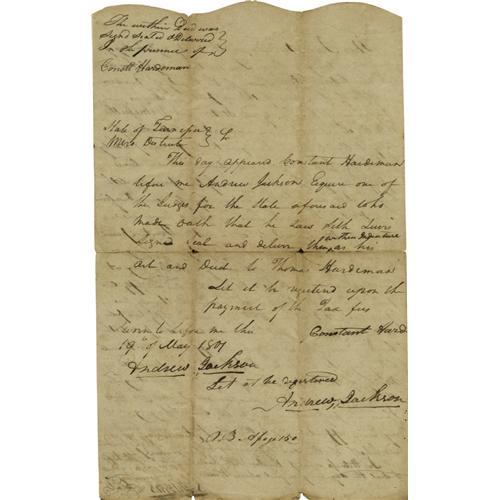 The within Deed was
Signd Seal'd & Delivered
In the presence of
Constt Hardeman
State of Tennessee
Mero District
This day appeared Constant Hardeman
before me Andrew Jackson Esquire one of
the Judges for the State aforesaid who
made Oath that he saw Seth Lewis
within Indenture
signed seal and deliver the as his
Act and Deed to Thomas Hardeman
Let it be registerd upon the
payment of the Tax fees
Sworn to before me this
Constant Hard
19th of May 1801
Andrew Jackson
Let it be registered
Andrew Jackson
150